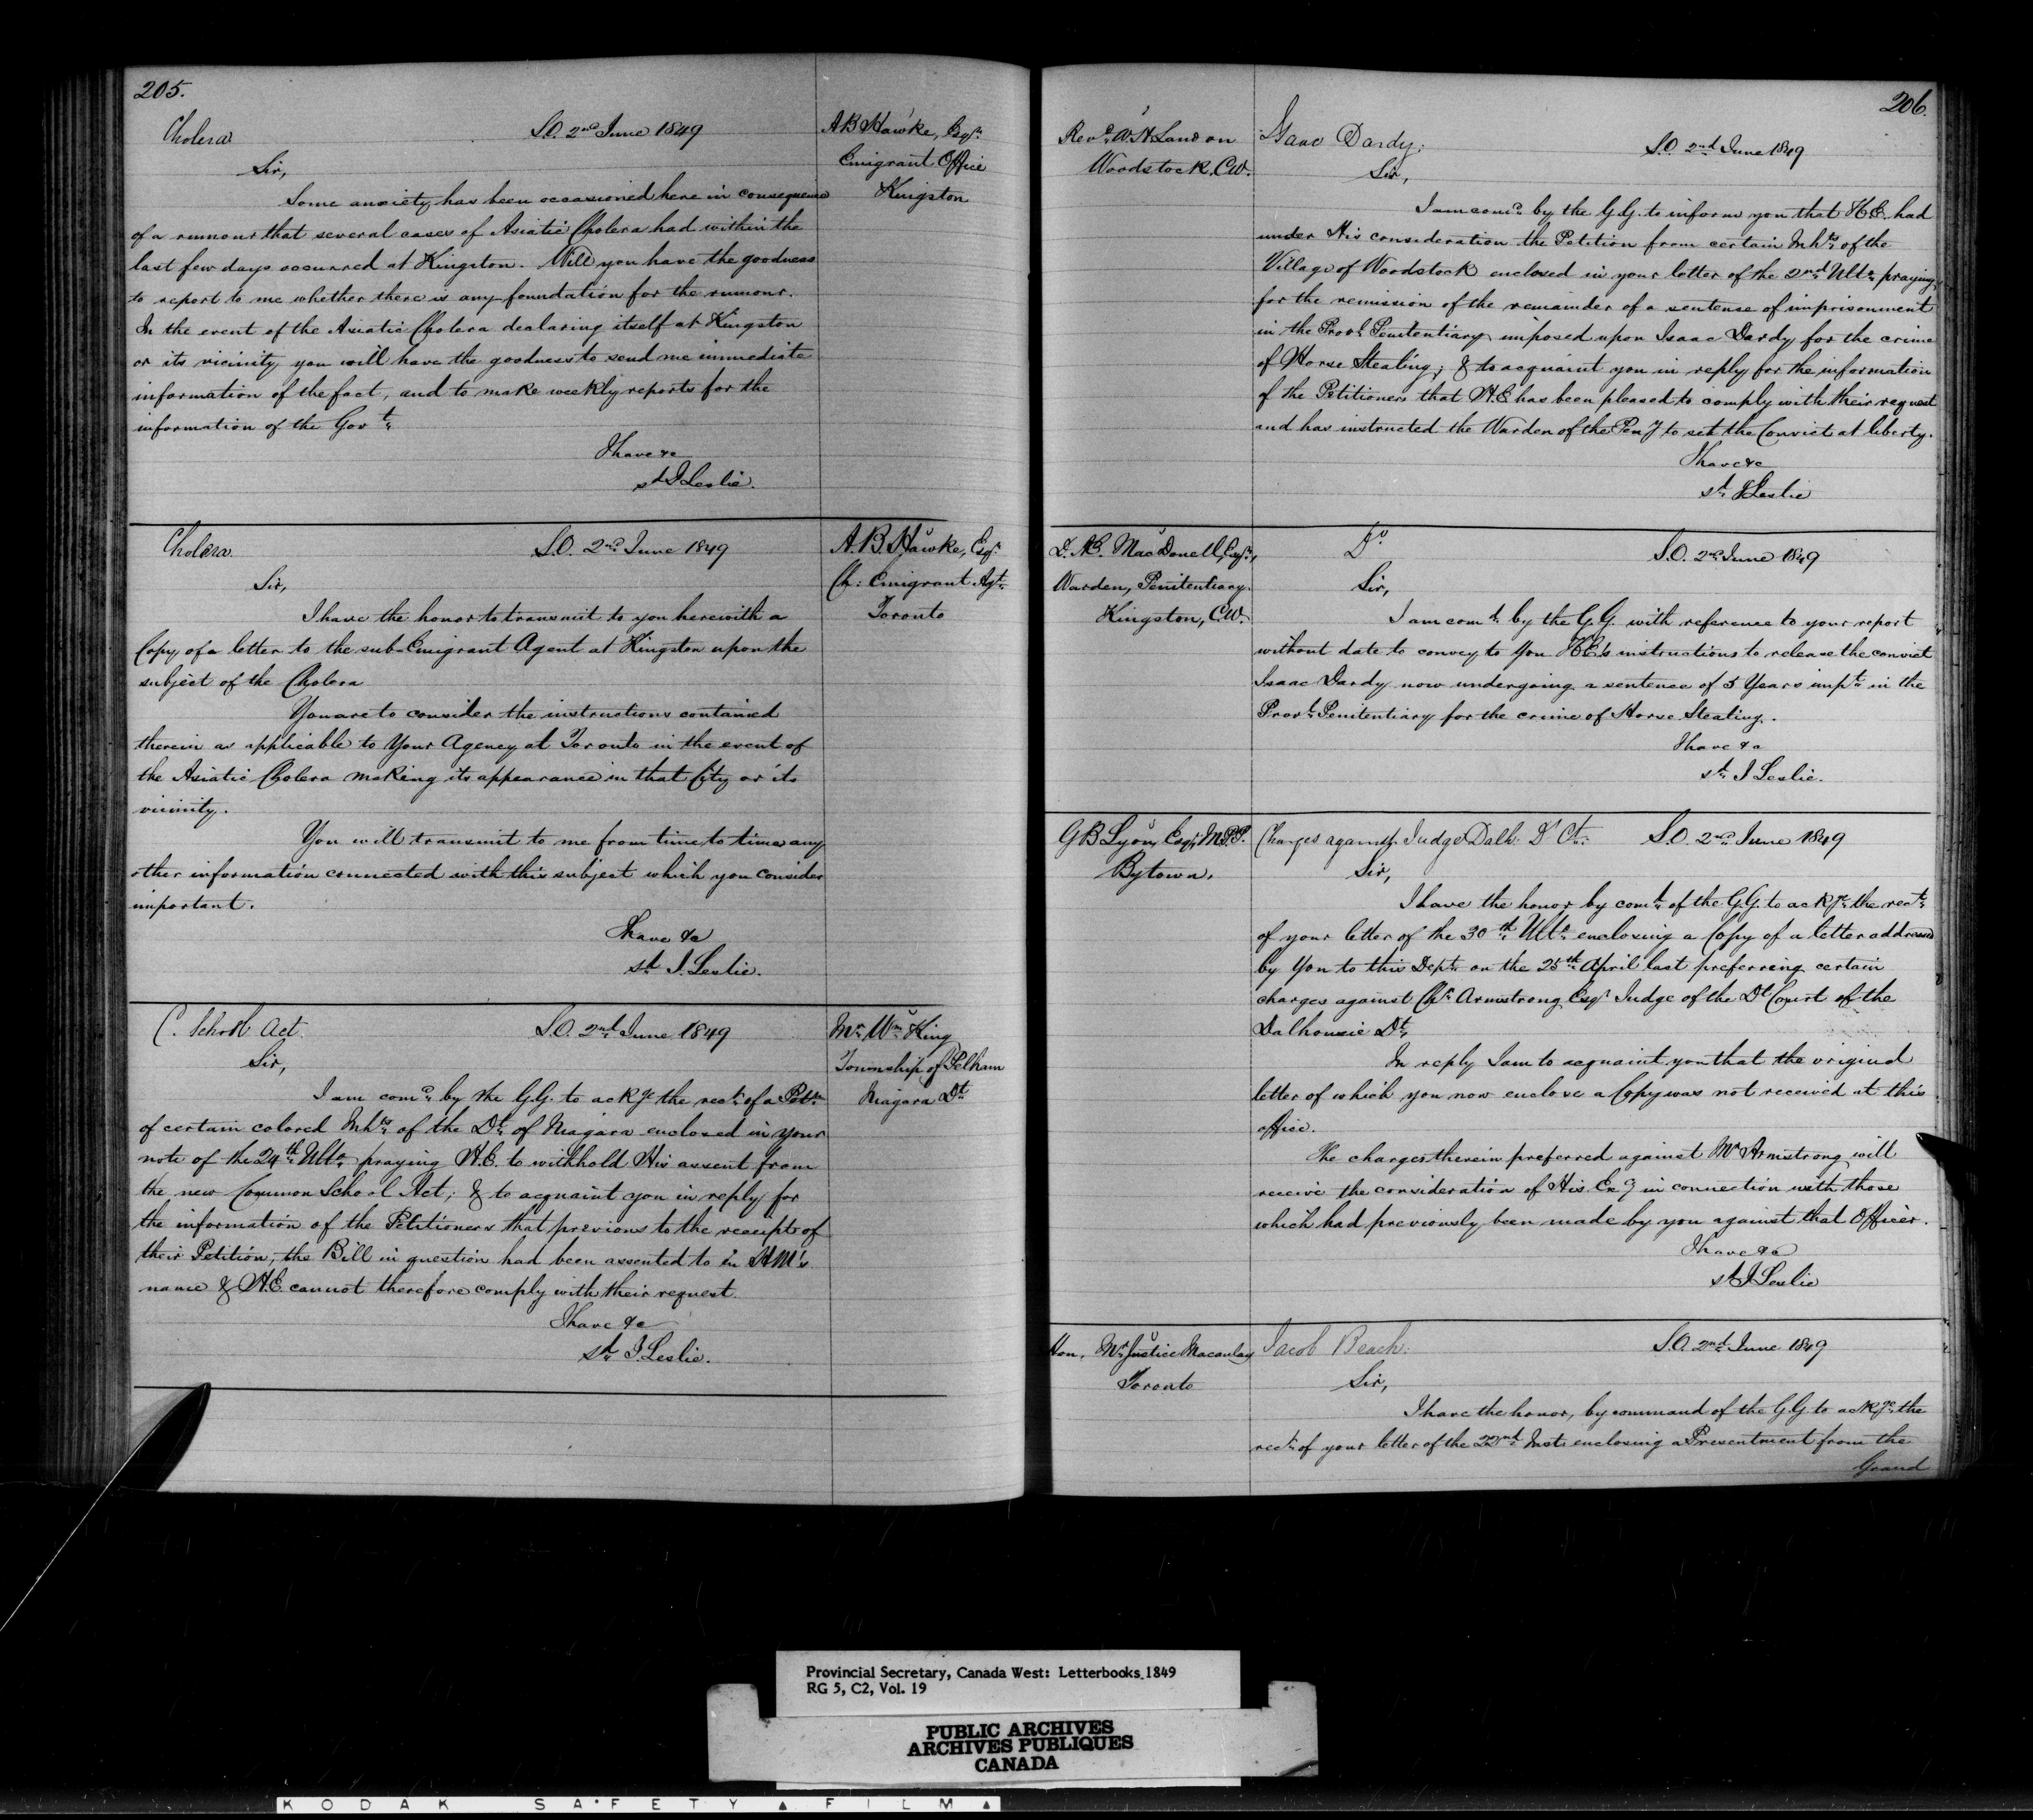 205.
Cholera
S.O. 2nd June 1849
A B Hawke, Esqr
Emigrant Office
Kingston
Sir,
Some anxiety has been occasioned here in consequence
of a rumour that several cases of Asiatic Cholera had within the
last few days occurred at Kingston. Will you have the goodness
to report to me whether there is any foundation for the rumour.
In the event of the Asiatic Cholera declaring itself at Kingston
or its vicinity you will have the goodness to send me immediate
information of the fact, and to make weekly reports for the
information of the Govt
I have &c
sd J Leslie.
Cholera
S.O. 2nd June 1849
A. B. Hawke, Esqr
Ch: Emigrant Agt
Toronto
Sir,
I have the honor to transmit to you herewith a
Copy of a letter to the sub-Emigrant Agent at Kingston upon the
subject of the Cholera
You are to consider the instructions contained
therein as applicable to Your Agency at Toronto in the event of
the Asiatic Cholera making its appearance in that City or its
vicinity.
You will transmit to me from time to time any
other information connected with this subject which you consider
important.
I have &c
sd J. Leslie.
C. School Act
S.O. 2nd June 1849
Mr Wm King
Township of Pelham
Niagara Dt
Sir,
I am comd by the G.G. to ackge the rect of a Petn
of certain colored Inhts of the Dt of Niagara enclosed in your
note of the 24th Ulto praying H.E. to withhold His assent from
the new Common School Act; & to acquaint you in reply for
the information of the Petitioners that previous to the receipt of
their Petition, the Bill in question had been assented to in H M's
name & H.E. cannot therefore comply with their request.
I have &c
sd J. Leslie.
206.
Revd W. H. Landon
Woodstock, C.W.
Isaac Dardy.
S.O. 2nd June 1849
Sir,
I am comd by the G.G. to inform you that H.E. had
under His consideration the Petition from certain Inhts of the
Village of Woodstock enclosed in your letter of the 2nd Ulto praying
for the remission of the remainder of a sentence of imprisonment
in the Provl Penitentiary imposed upon Isaac Dardy for the crime
of Horse Stealing; & to acquaint you in reply for the information
of the Petitioners that H.E has been pleased to comply with their request
and has instructed the Warden of the Peny to set the Convict at liberty.
I have &c
sd J Leslie
D. Æ. MacDonell, Esqr,
Warden, Penitentiary.
Kingston, C.W.
Do
S.O. 2nd June 1849
Sir,
I am comd by the G.G. with reference to your report
without date to convey to You H.E's instructions to release the convict
Isaac Dardy now undergoing a sentence of 5 Years impt in the
Provl Penitentiary for the crime of Horse Stealing.
I have &c
sd J Leslie.
G B Lyon, Esqr, M.P.P.
Bytown.
Charges against Judge Dalh: Dt Ct.
S.O. 2nd June 1849
Sir,
I have the honor by comd of the G.G. to ackge the rect
of your letter of the 30th Ulto enclosing a Copy of a letter addressed
by You to this Dept on the 25th April last preferring certain
charges against Chr Armstrong Esqr Judge of the Dt Court of the
Dalhousie Dt
In reply I am to acquaint you that the original
letter of which you now enclose a Copy was not received at this
office.
The charges therein preferred against Mr Armstrong will
receive the consideration of His Exy in connection with those
which had previously been made by you against that Officer.
I have &c
sd J Leslie
Hon. Mr Justice Macaulay
Toronto
Jacob Beach.
S.O. 2nd June 1849
Sir,
I have the honor, by command of the G.G. to ackge the
rect of your letter of the 22nd Inst enclosing a Presentment from the
Grand
Provincial Secretary, Canada West: Letterbooks 1849
RG 5, C2, Vol. 19
PUBLIC ARCHIVES
ARCHIVES PUBLIQUES
CANADA
KODAK SAFETY FILM